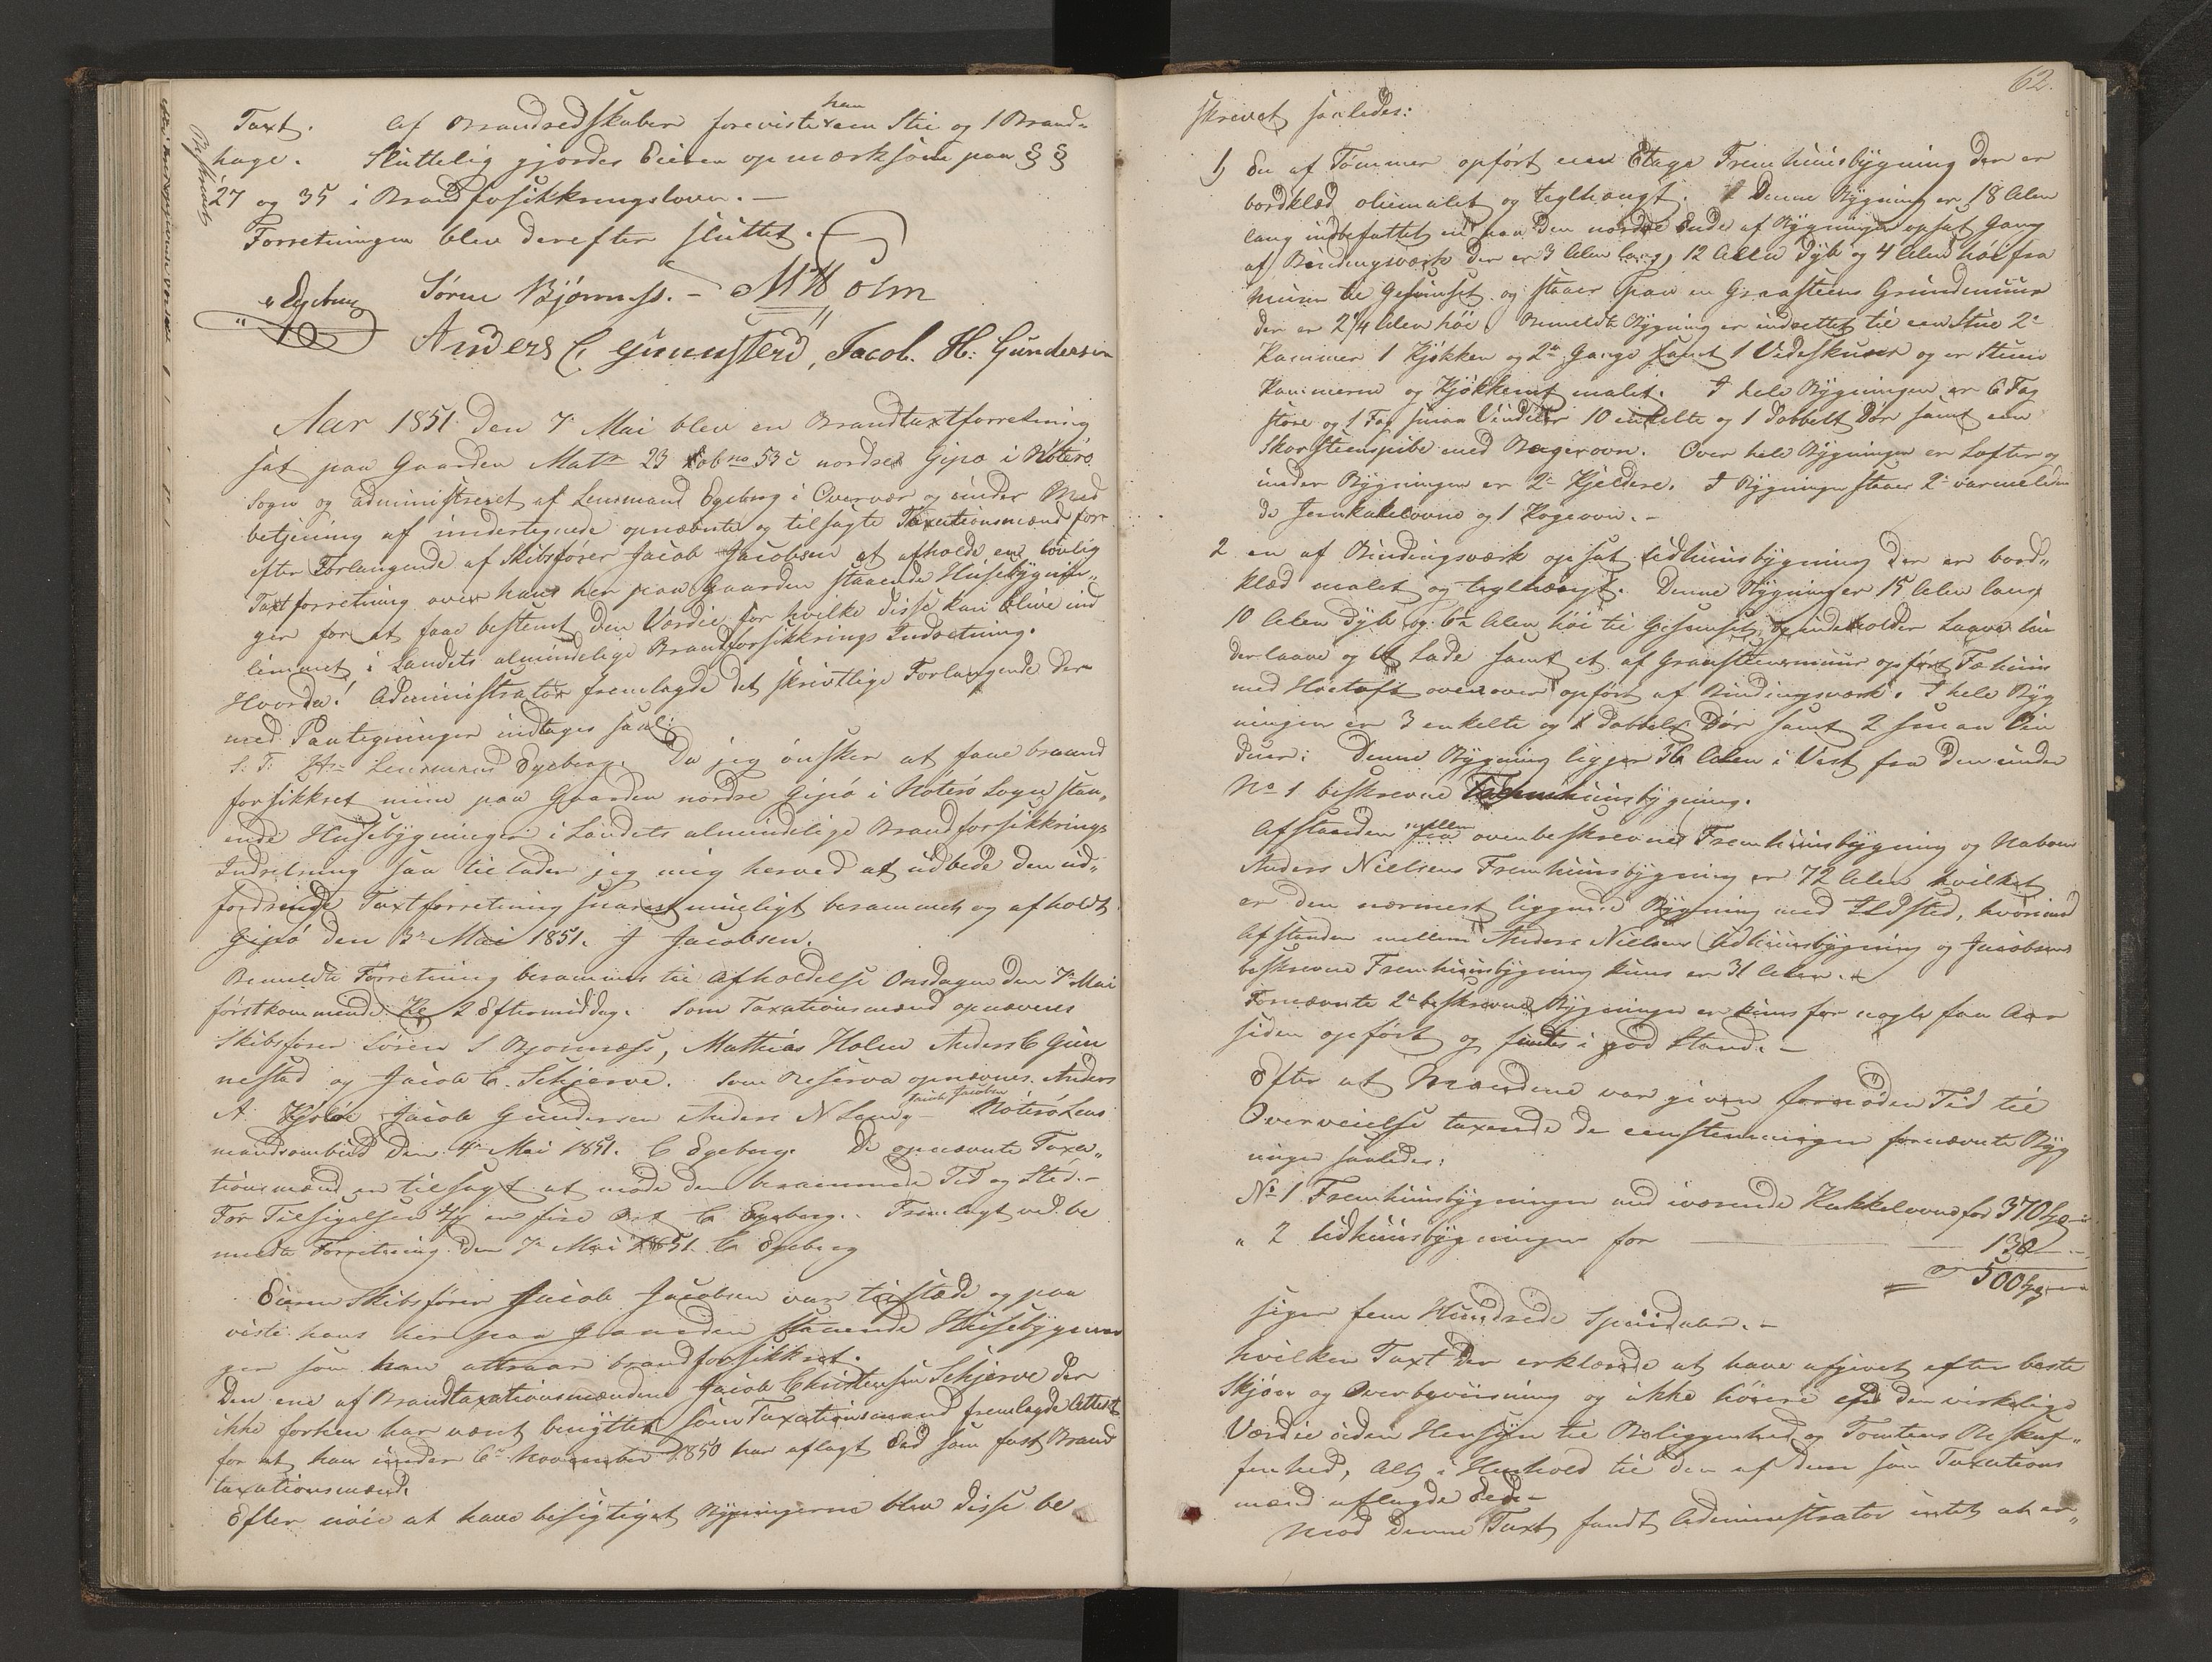 Taxt. Af Brandredskaber foreviste han een Stie og 1 Brand-
hage. Sluttelig gjordes Eieren opmærksom paa § §
27 og 35 i Brandforsikkringsloven. –
Forretningen blev derefter sluttet. –
Egeberg Søren Bjørness. – M Holm
Anders C. Gunnestad, Jacob. H: Gundersen
Aar 1851 den 7de Mai blev en Brandtaxtforretning
sat paa Gaarden Matr 23 Løbno 53c nordre Gipø i Nøterø
Sogn og administreret af Lensmand Egeberg i Overvær og under Med
betjening af undertegnede opnævnte og tilsagte Taxationsmænd for
efter Forlangende af Skibsfører Jacob Jacobsen at afholde en lovlig
Taxtforretning over hans her paa Gaarden staaende Huusebygnin-
ger for at faae bestemt den Værdie for hvilke disse kan blive ind
lemmet i Landets almindelige Brandforsikkrings Indretning.
Hvorda! Administrator fremlagde det skrivtlige Forlangende der
med Paategninger indtages saal:
S. T. Hr Lensmand Egeberg. Da jeg ønsker at faae brannd
forsikkret mine paa Gaarden nordre Gipø i Nøterø Sogn staa-
ende Huusebygninger i Landets almindelige Brandforsikkrings
Indretning saa tillader jeg mig herved at udbede den ud-
fordrende Taxtforretning snarest mueligt berammet og afholdt.
Gipø den 3de Mai 1851. J Jacobsen.
Bemeldte Forretning berammes til Afholdelse Onsdagen den 7de Mai
førstkommende Kl 2 Eftermiddag. Som Taxationsmænd opnævnes
Skibsfører Søren S Bjørnness, Mathias Holm Anders C Gun
nestad og Jacob C. Schjerve. Som Reserve opnævnes Anders
A. Kjøløe Jacob Gundersen Anders N Lang Jacob Jacobsen Nøterø Lens
mandsombud den 4de Mai 1851. C Egeberg. De opnævnte Taxa-
tionsmænd er tilsagt at møde den berammede Tid og Sted. –
For Tilsigelsen er fire Ort C Egeberg. Fremlagt ved be
meldte Forretning den 7de Mai 1851. C Egeberg
Eieren Skibsfører Jacob Jacobsen var tilstæde og paa
viste hans her paa Gaarden staaende Huusebygnin
ger som han attraar brandforsikkret.
Den ene af Brandtaxationsmændene Jacob Christensen Schjerve der
ikke forhen har været benyttet som Taxationsmand fremlagde Attest
for at han under 6te November 1850 har aflagt Eed som fast Brand
taxationsmand.
Efter nøie at have besigtiget Bygningerne blev disse be
62.
skrevet saaledes:
1) En af Tømmer opført een Etage Fremhuusbygning der er
bordklæd oliemalet og teglhængt. Denne Bygning er 18 Alen
lang indbefattet en paa den nordre Ende af Bygningen opsat Gang
af Bindingsværk der er 3 Alen lang, 12 Alen dyb og 4 Alen høi fra
Muren til Gesimset og staaer paa en Graasteens Grundmuur
der er 2 1/4 Alen høi. Bemeldte Bygning er indrettet til een Stue 2de
Kammer 1 Kjøkken og 2de Gange samt 1 Vedeskuur og er Stuen
Kammerne og Kjøkkenet malet. I hele Bygningen er 6 Fag
store og 1 Fag smaa Vinduer 10 enkelte og 1 dobbelt Dør samt een
Skorsteenspibe med Bagerovn. Over hele Bygningen er Lofter og
under Bygningen er 2de Kjeldere. I Bygningen staaer 2de varmeleden
de Jernkakelovne og 1 Kogeovn. –
2 en af Bindingsværk opsat Udhuusbygning der er bord-
klæd malet og teglhængt. Denne Bygning er 15 Alen lang
10 Alen dyb og 6 1/2 Alen høi til Gesimset, og indeholder Laave Un
derlaave og et Lade samt et af Graasteensmuur opført Fæhuus
med Høeloft ovenover opført af Bindingsværk. I hele Byg
ningen er 3 enkelte og 1 dobbelt Dør samt 2 smaa Vin
duer: Denne Bygning ligger 36 Alen i Vest fra den under
No 1 beskrevne Fremhuusbygning.
Afstanden mellem ovenbeskrevne Fremhuusbygning og Naboen
Anders Nielsens Fremhuusbygning er 72 Alen hvilket
er den nærmest liggende Bygning med Ildsted, hvorimod
Afstanden mellem Anders Nielsens Udhuusbygning og Jacobsens
beskrevne Fremhuusbygning kuns er 31 Alen. –
Fornævnte 2de beskrevne Bygninger er kuns for nogle faa Aar
siden opført og findes i god Stand. –
Efter at Mændene var given fornøden Tid til
Overveielse taxerede de eenstemmigen fornævnte Byg
ninger saaledes:
No 1 Fremhuusbygningen med iværende Kakkelovne for 370 Spd
„ 2 Udhuusbygningen for 130 –
500 Spd
siger fem Hundrede Speciedaler. –
hvilken Taxt der erklærede at have afgivet efter beste
Skjøn og Overbeviisning og ikke høiere end den virkelige
Værdie uden Hensyn til Beliggenhed og Tomtens Beskaf-
fenhed, Alt i Henhold til den af dem som Taxations
mænd aflagde Eed. –
Mod denne Taxt fandt Administrator intet at er-